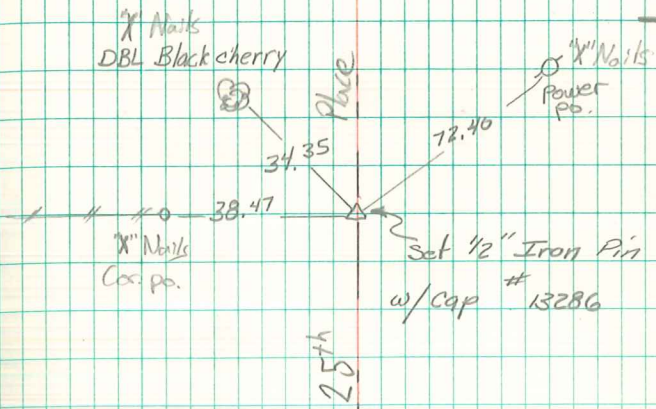 "X" Nails
DBL Black cherry
"X" Nails
Power
po.
Place
34.35
72.40
38.47
"X" Nails
Cor. po.
Set 1/2" Iron Pin
w/ cap # 13286
25th